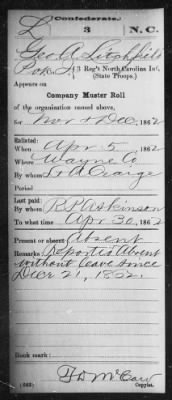 Confederate.
L 3 N.C.
Geo A Litchfield
(3 Reg't North Carolina Inf.
(State Troops.)
Appears on
Company Muster Roll
of the organization named above,
for Nov & Dec, 1862
Enlisted:
When Apr 5, 1862
Where Wayne Co
By whom Lt A Craige
Period
Last paid:
By whom R P Askinson
To what time Apr 30, 1862
Present or absent Absent
Remarks: Reported Absent
without leave since
Decr 21, 1862.
Book mark:
Copyist.